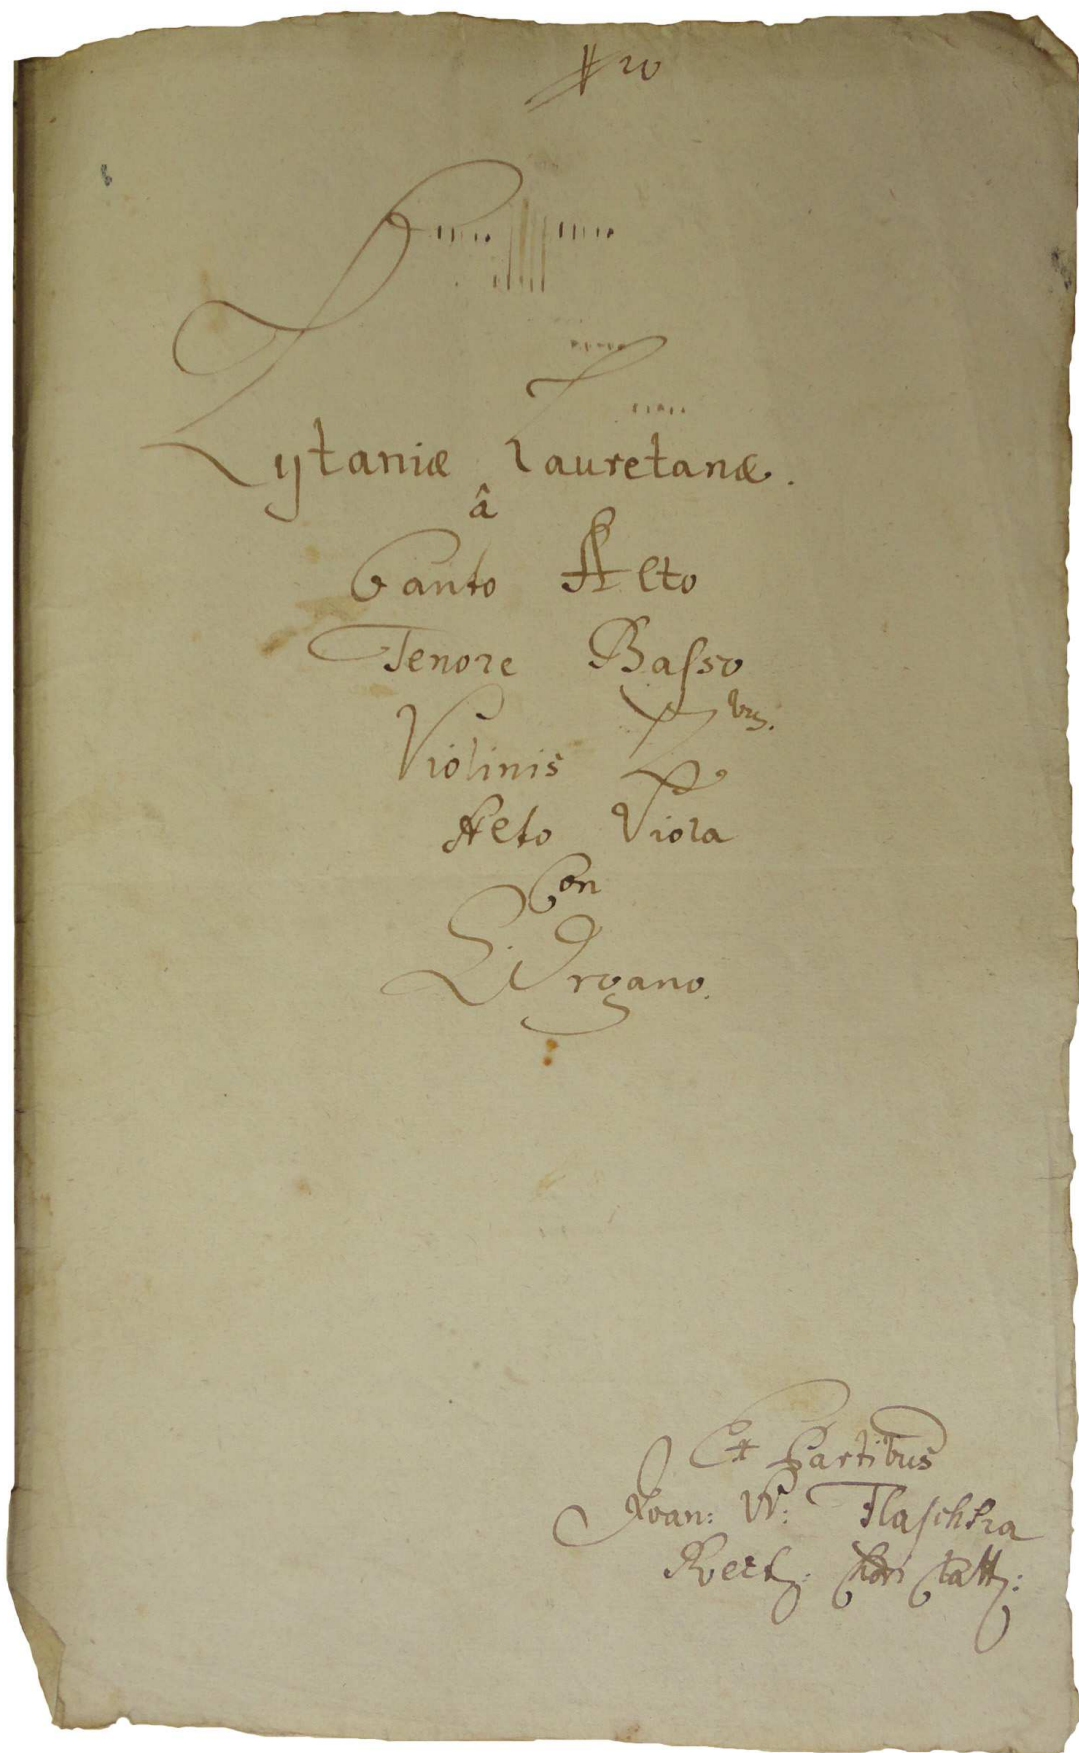 Lytaniæ Lauretanæ.
â
Canto Alto
Tenore Basso
Violinis
Alto Viola
Con
L'Organo.
Ex Partibus
Joan: W: Flaschka
Rect: Chori Catt: